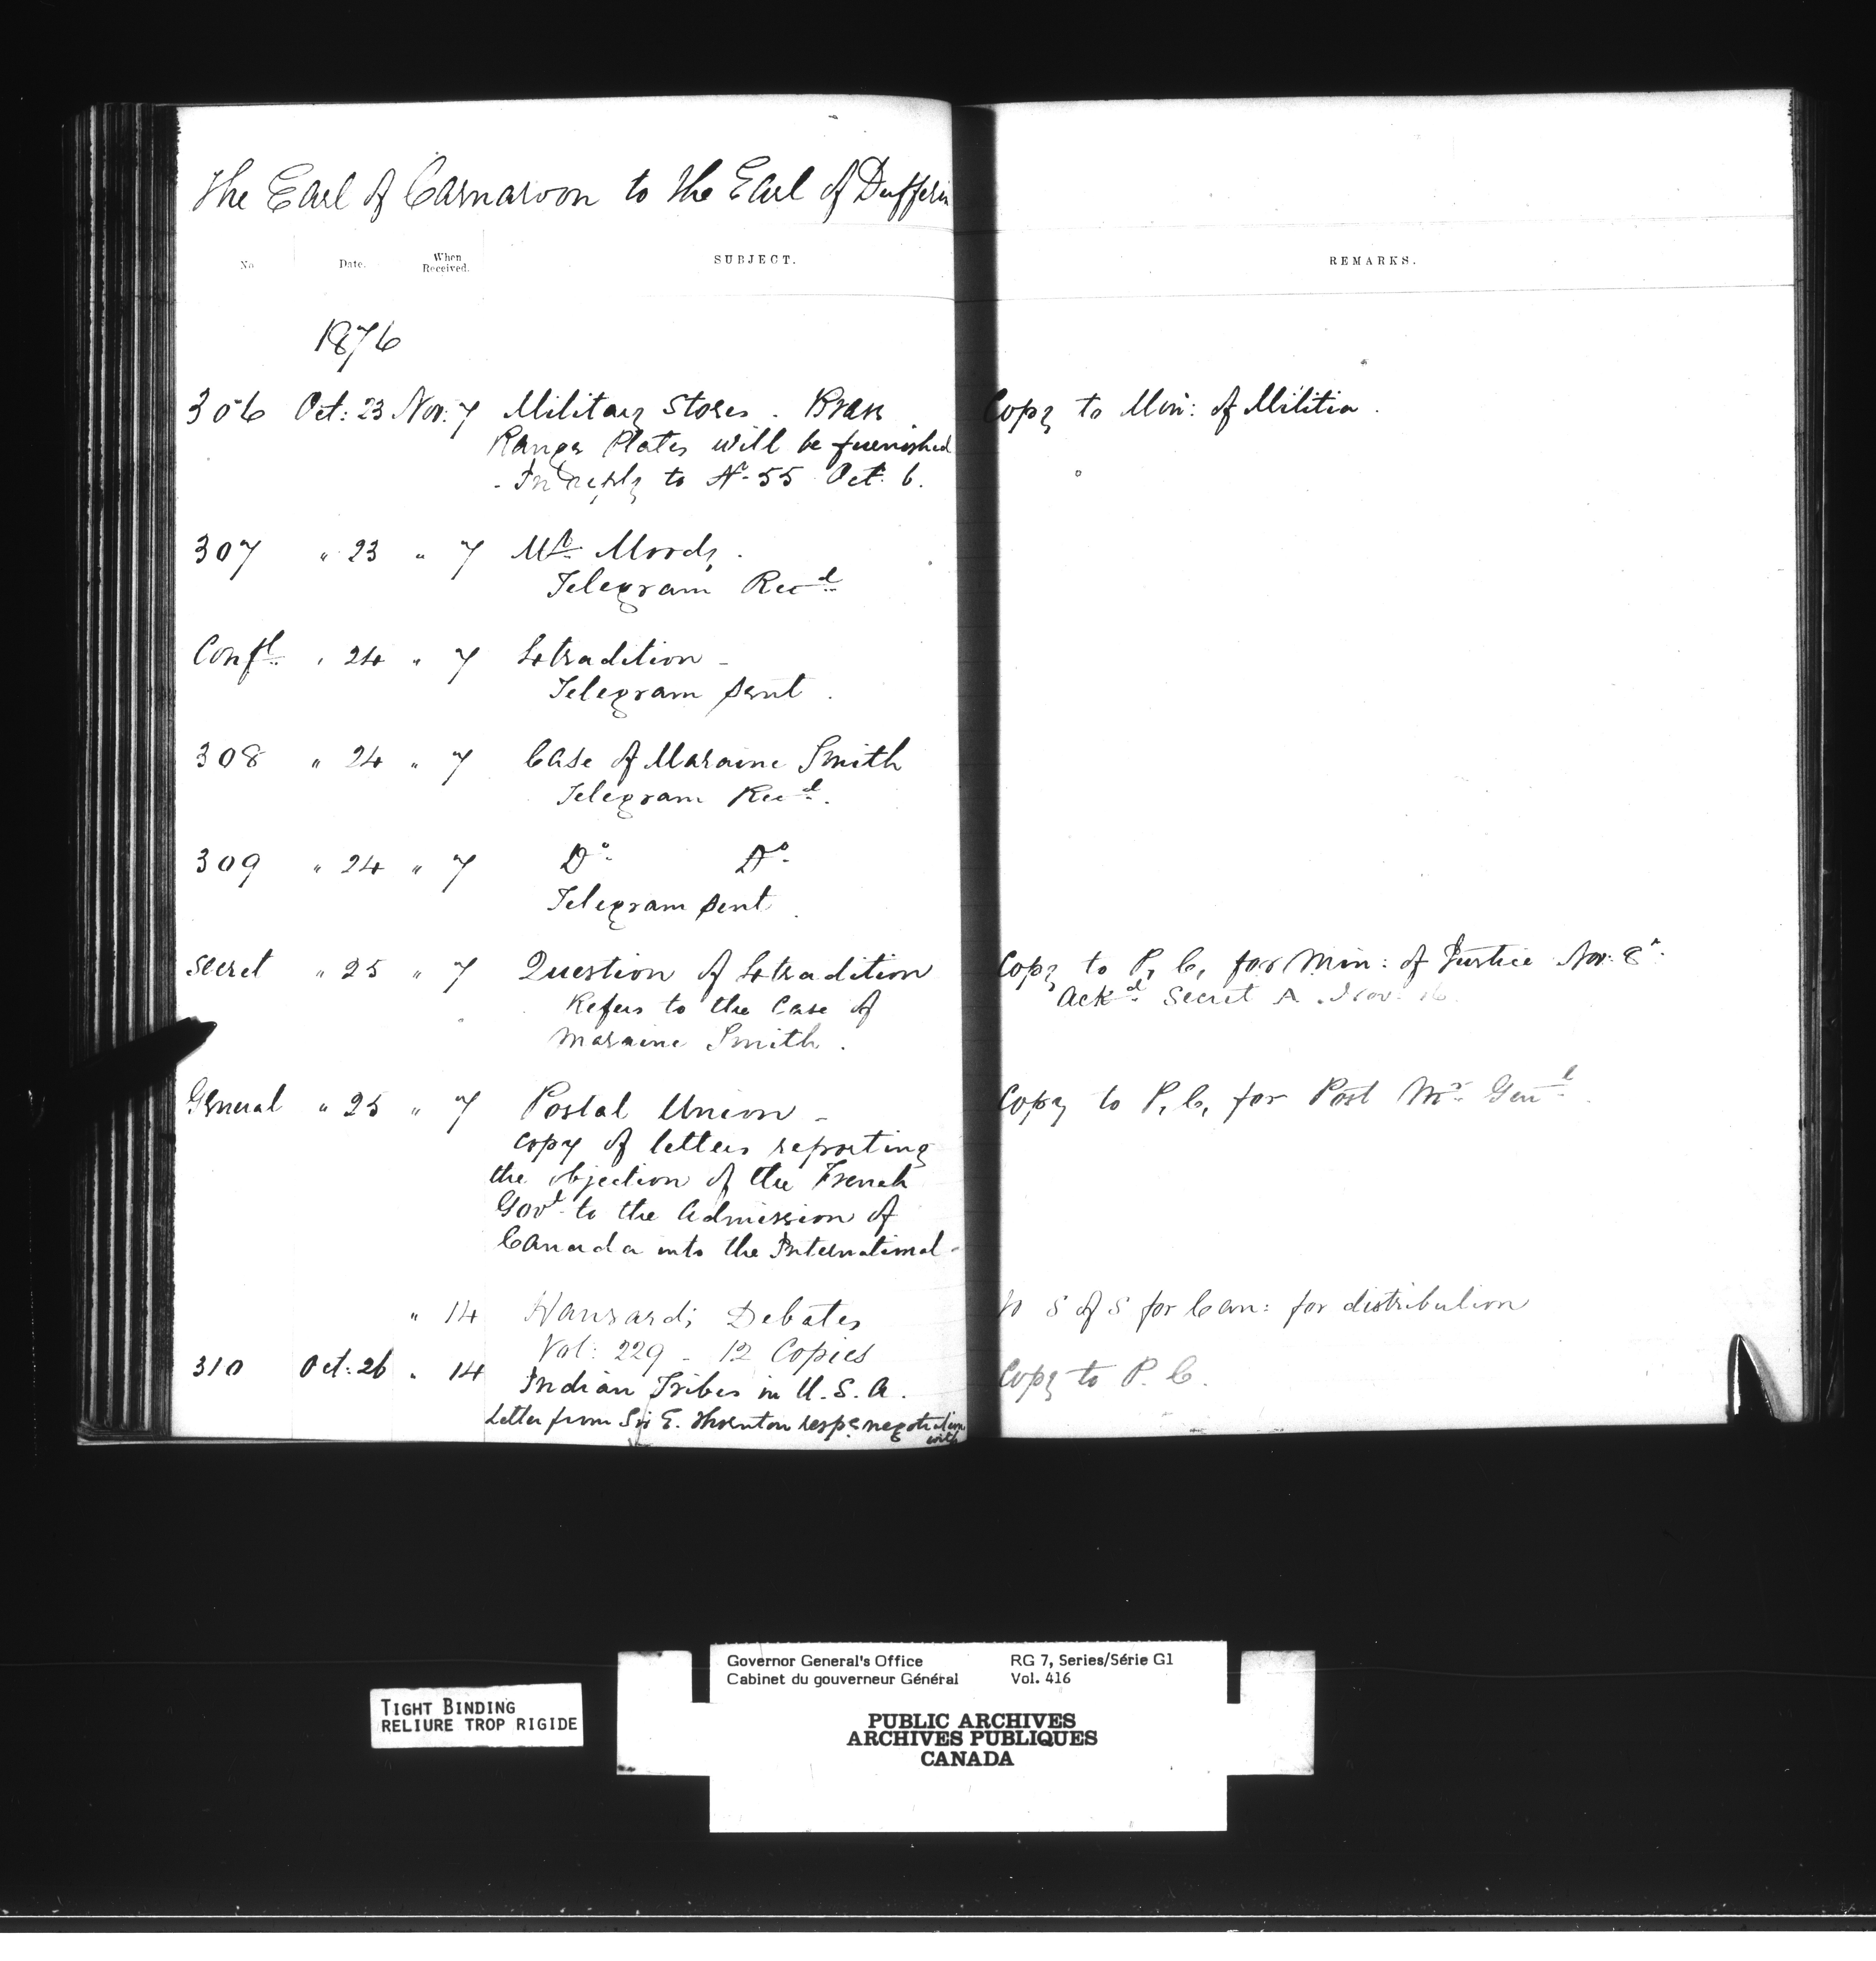 The Earl of Carnarvon to the Earl of Dufferin
No Date. When Received. SUBJECT. REMARKS.
1876
306 Oct: 23 Nov: 7 Military Stores. Brass Copy to Min: of Militia.
Range Plates will be furnished
- In reply to No 55 Oct. 6.
307 " 23 " 7 Mr Moody.
Telegram Recd
Confl " 24 " 7 Extradition -
Telegram sent.
308 " 24 " 7 Case of Maraine Smith
Telegram Recd.
309 " 24 " 7 Do Do
Telegram sent.
Secret " 25 " 7 Question of Extradition Copy to P. C. for Min: of Justice Nov: 8
Refers to the Case of Ackd Secret A. Nov. 16
Maraine Smith.
General " 25 " 7 Postal Union - Copy to P. C. for Post Mr Genl.
Copy of letters reporting
the objection of the French
Govt to the admission of
Canada into the International -
" 14 Hansard's Debates To S of S for Can: for distribution
Vol: 229 - 12 Copies
310 Oct: 26 " 14 Indian Tribes in U.S.A. Copy to P. C.
Letter from Sir E. Thornton respg negotiation
with
TIGHT BINDING
RELIURE TROP RIGIDE
Governor General's Office RG 7, Series/Série G1
Cabinet du gouverneur Général Vol. 416
PUBLIC ARCHIVES
ARCHIVES PUBLIQUES
CANADA